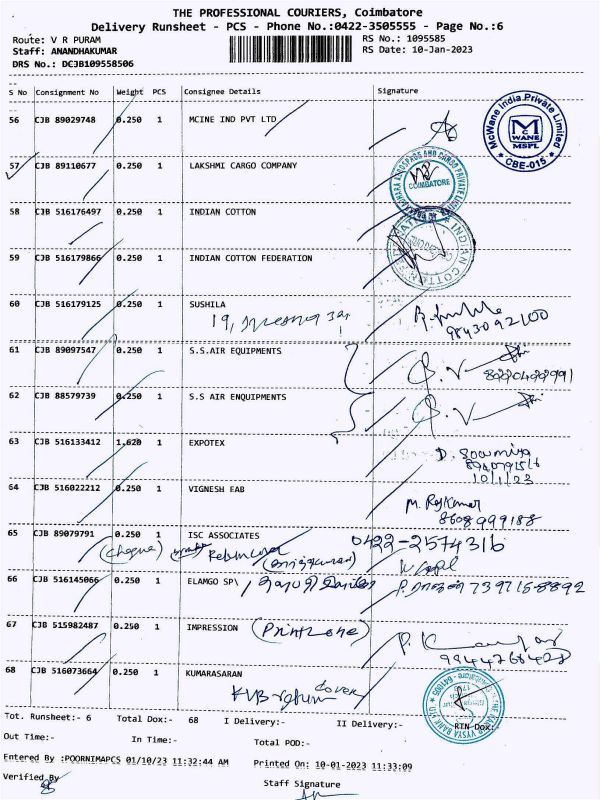 THE PROFESSIONAL COURIERS, Coimbatore
Delivery Runsheet - PCS - Phone No.:0422-3505555 - Page No.:6
Route: V R PURAM
RS No.: 1095585
Staff: ANANDHAKUMAR
RS Date: 10-Jan-2023
DRS No.: DCJB109558506
S No Consignment No Weight PCS Consignee Details Signature
56 CJB 89029748 0.250 1 MCINE IND PVT LTD
McWane India Private Limited
McWANE
MSPL
CBE-015
57 CJB 89110677 0.250 1 LAKSHMI CARGO COMPANY
AEROSPACE AND CARGO PRIVATE
COIMBATORE
58 CJB 516176497 0.250 1 INDIAN COTTON
INDIAN COTTON
59 CJB 516179866 0.250 1 INDIAN COTTON FEDERATION
60 CJB 516179125 0.250 1 SUSHILA
19,
9843092100
61 CJB 89097547 0.250 1 S.S.AIR EQUIPMENTS
62 CJB 88579739 0.250 1 S.S AIR ENQUIPMENTS
63 CJB 516133412 1.620 1 EXPOTEX
D. Sowmiya
10/1/23
64 CJB 516022212 0.250 1 VIGNESH EAB
M. Rajkumar
8608999188
65 CJB 89079791 0.250 1 ISC ASSOCIATES
0422-2574316
(cheque)
66 CJB 516145066 0.250 1 ELAMGO SP\
739715-8892
67 CJB 515982487 0.250 1 IMPRESSION (Printzone)
9944268428
68 CJB 516073664 0.250 1 KUMARASARAN
KVB return cover
VYSYA BANK
Tot. Runsheet:- 6 Total Dox:- 68 I Delivery:- II Delivery:- RTN Dox:
Out Time:- In Time:- Total POD:-
Entered By :POORNIMAPCS 01/10/23 11:32:44 AM Printed On: 10-01-2023 11:33:09
Verified By
Staff Signature